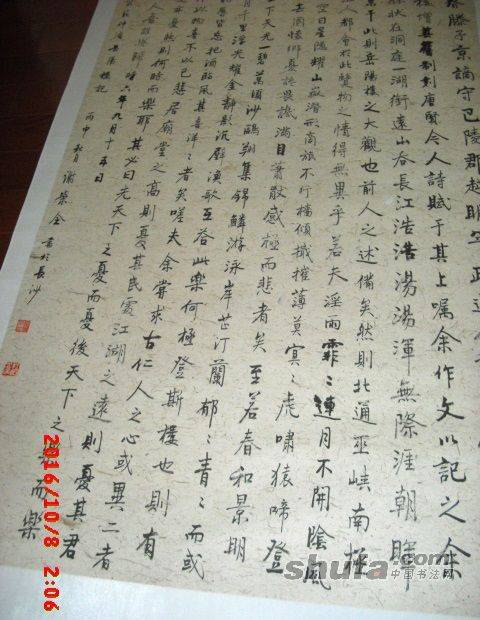 春滕子京謫守巴陵郡越明年政通
樓增其舊制刻唐賢今人詩賦于其上囑余作文以記之余
勝狀在洞庭一湖銜遠山吞長江浩浩湯湯渾無際涯朝暉
千此則岳陽樓之大觀也前人之述備矣然則北通巫峽南極
人都會於此覽物之情得無異乎若夫淫雨霏〻連月不開陰風
空日星隱曜山嶽潛形商旅不行檣傾檝摧薄莫冥〻虎嘯猿啼登
去國懷鄉憂讒畏譏滿目蕭散感極而悲者矣至若春和景明
下天光一碧萬頃沙鷗翔集錦鱗游泳岸芷汀蘭郁〻青〻而或
月千里浮光耀金靜影沉璧漁歌互答此樂何極登斯樓也則有
皆忘把酒臨風其喜洋〻者矣嗟夫余嘗求古仁人之心或異二者
以物喜不以己悲居廟堂之高則憂其民處江湖之遠則憂其君
亦憂然則何時而樂耶其必曰先天下之憂而憂後天下之樂而樂
人吾誰與歸時六年九月十五日
岳陽樓記
丙申
謝榮全書於長沙
2016/10/8 2:06
shufa.com
中国书法网